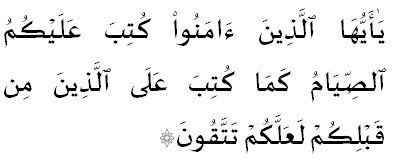 يَٰٓأَيُّهَا ٱلَّذِينَ ءَامَنُوا۟ كُتِبَ عَلَيْكُمُ
ٱلصِّيَامُ كَمَا كُتِبَ عَلَى ٱلَّذِينَ مِن
قَبْلِكُمْ لَعَلَّكُمْ تَتَّقُونَ ۞